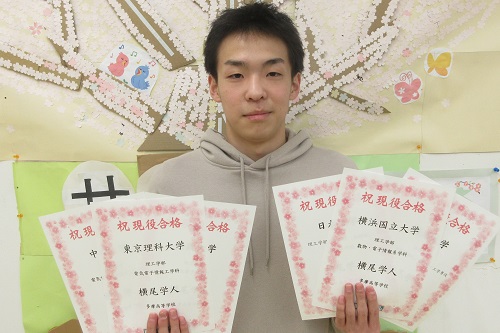 サ
祝現役合格
中
祝現役合格
東京理科大学
理工学部
電気電子情報工学科
横尾学人
多摩高等学校
学
祝現役合格
日
理工学部
祝現役合格
横浜国立大学
理工学部
数物・電子情報系学科
横尾学人
多摩高等学校
学